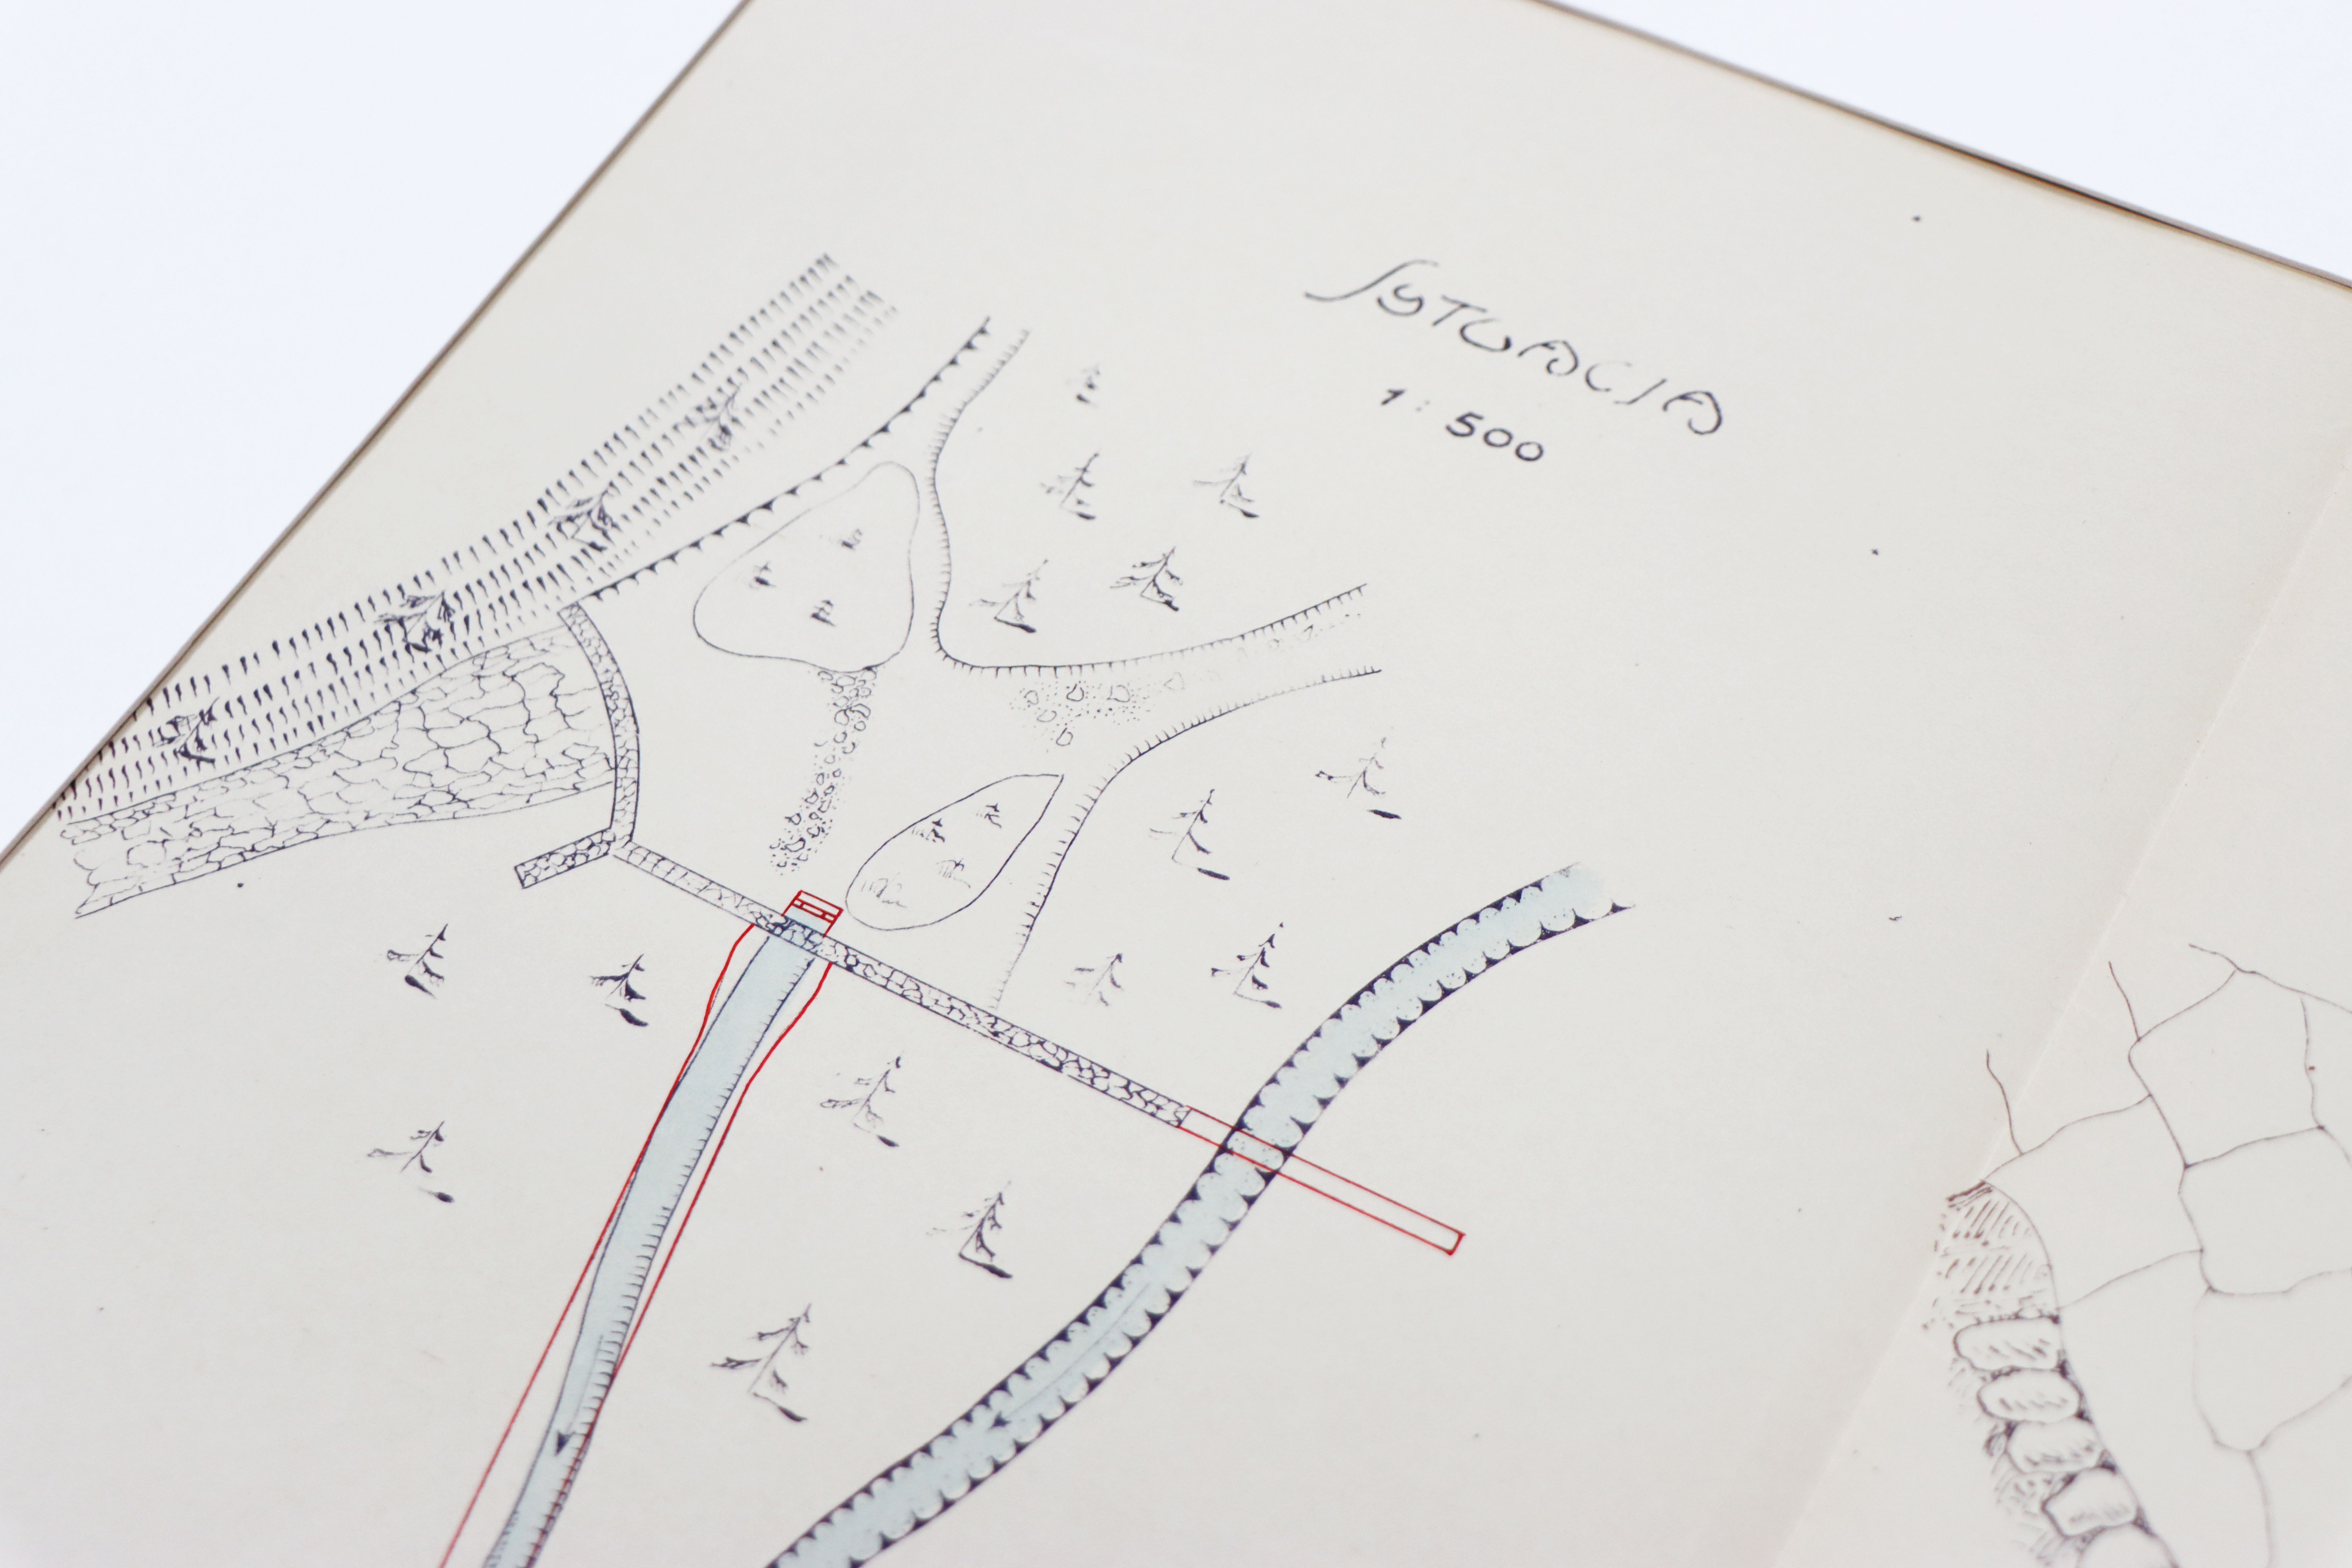 SYTUACJA
1:500